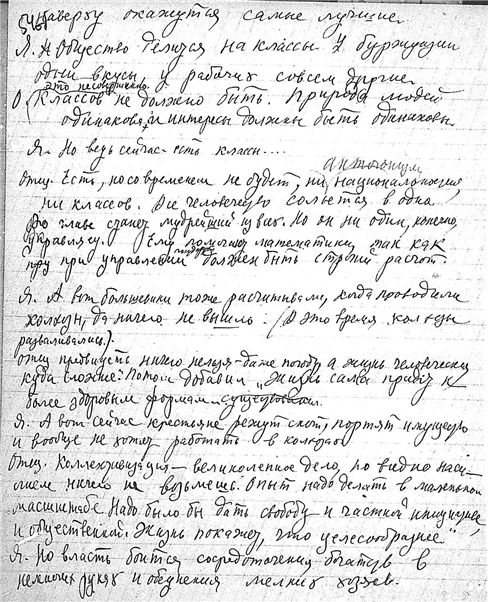 наверху окажутся самые лучшие.
Я. А общество делится на классы. У буржуазии
одни вкусы у рабочих совсем другие.
это несовершенно.
О Классов не должно быть. Природа людей
одинакова, и интересы должны быть одинаковы.
Я. Но ведь сейчас есть классы....
антагонизм
Отец. Есть, но со временем не будет, ни национальностей,
ни классов. Все человечество сольется в одно.
Во главе станет мудрейший из всех. Но он не один, конечно,
управлять. Ему помогают математики, так как
при управлении должен быть строгий расчет.
Я. А вот большевики тоже расчитывали, когда проводили
колхозы, да ничего не вышло. (В это время колхозы
разваливались.)
Отец предвидеть ничего нельзя - даже погоду а жизнь человеческая
куда сложнее. Потом добавил "Жизнь сама придет к
более здоровым формам существования.
Я. А вот сейчас крестьяне режут скот, портят имущество
и вообще не хотят работать в колхозах
Отец. Коллективизация - великолепное дело, но видно наси-
лием ничего не возьмешь. Опыт надо делать в маленьком
масштабе. Надо было бы дать свободу и частной инициативе,
и общественной. Жизнь покажет, что целесообразнее"
Я. Но власть боится сосредоточения богатств в
немногих руках и обеднения мелких хозяев.